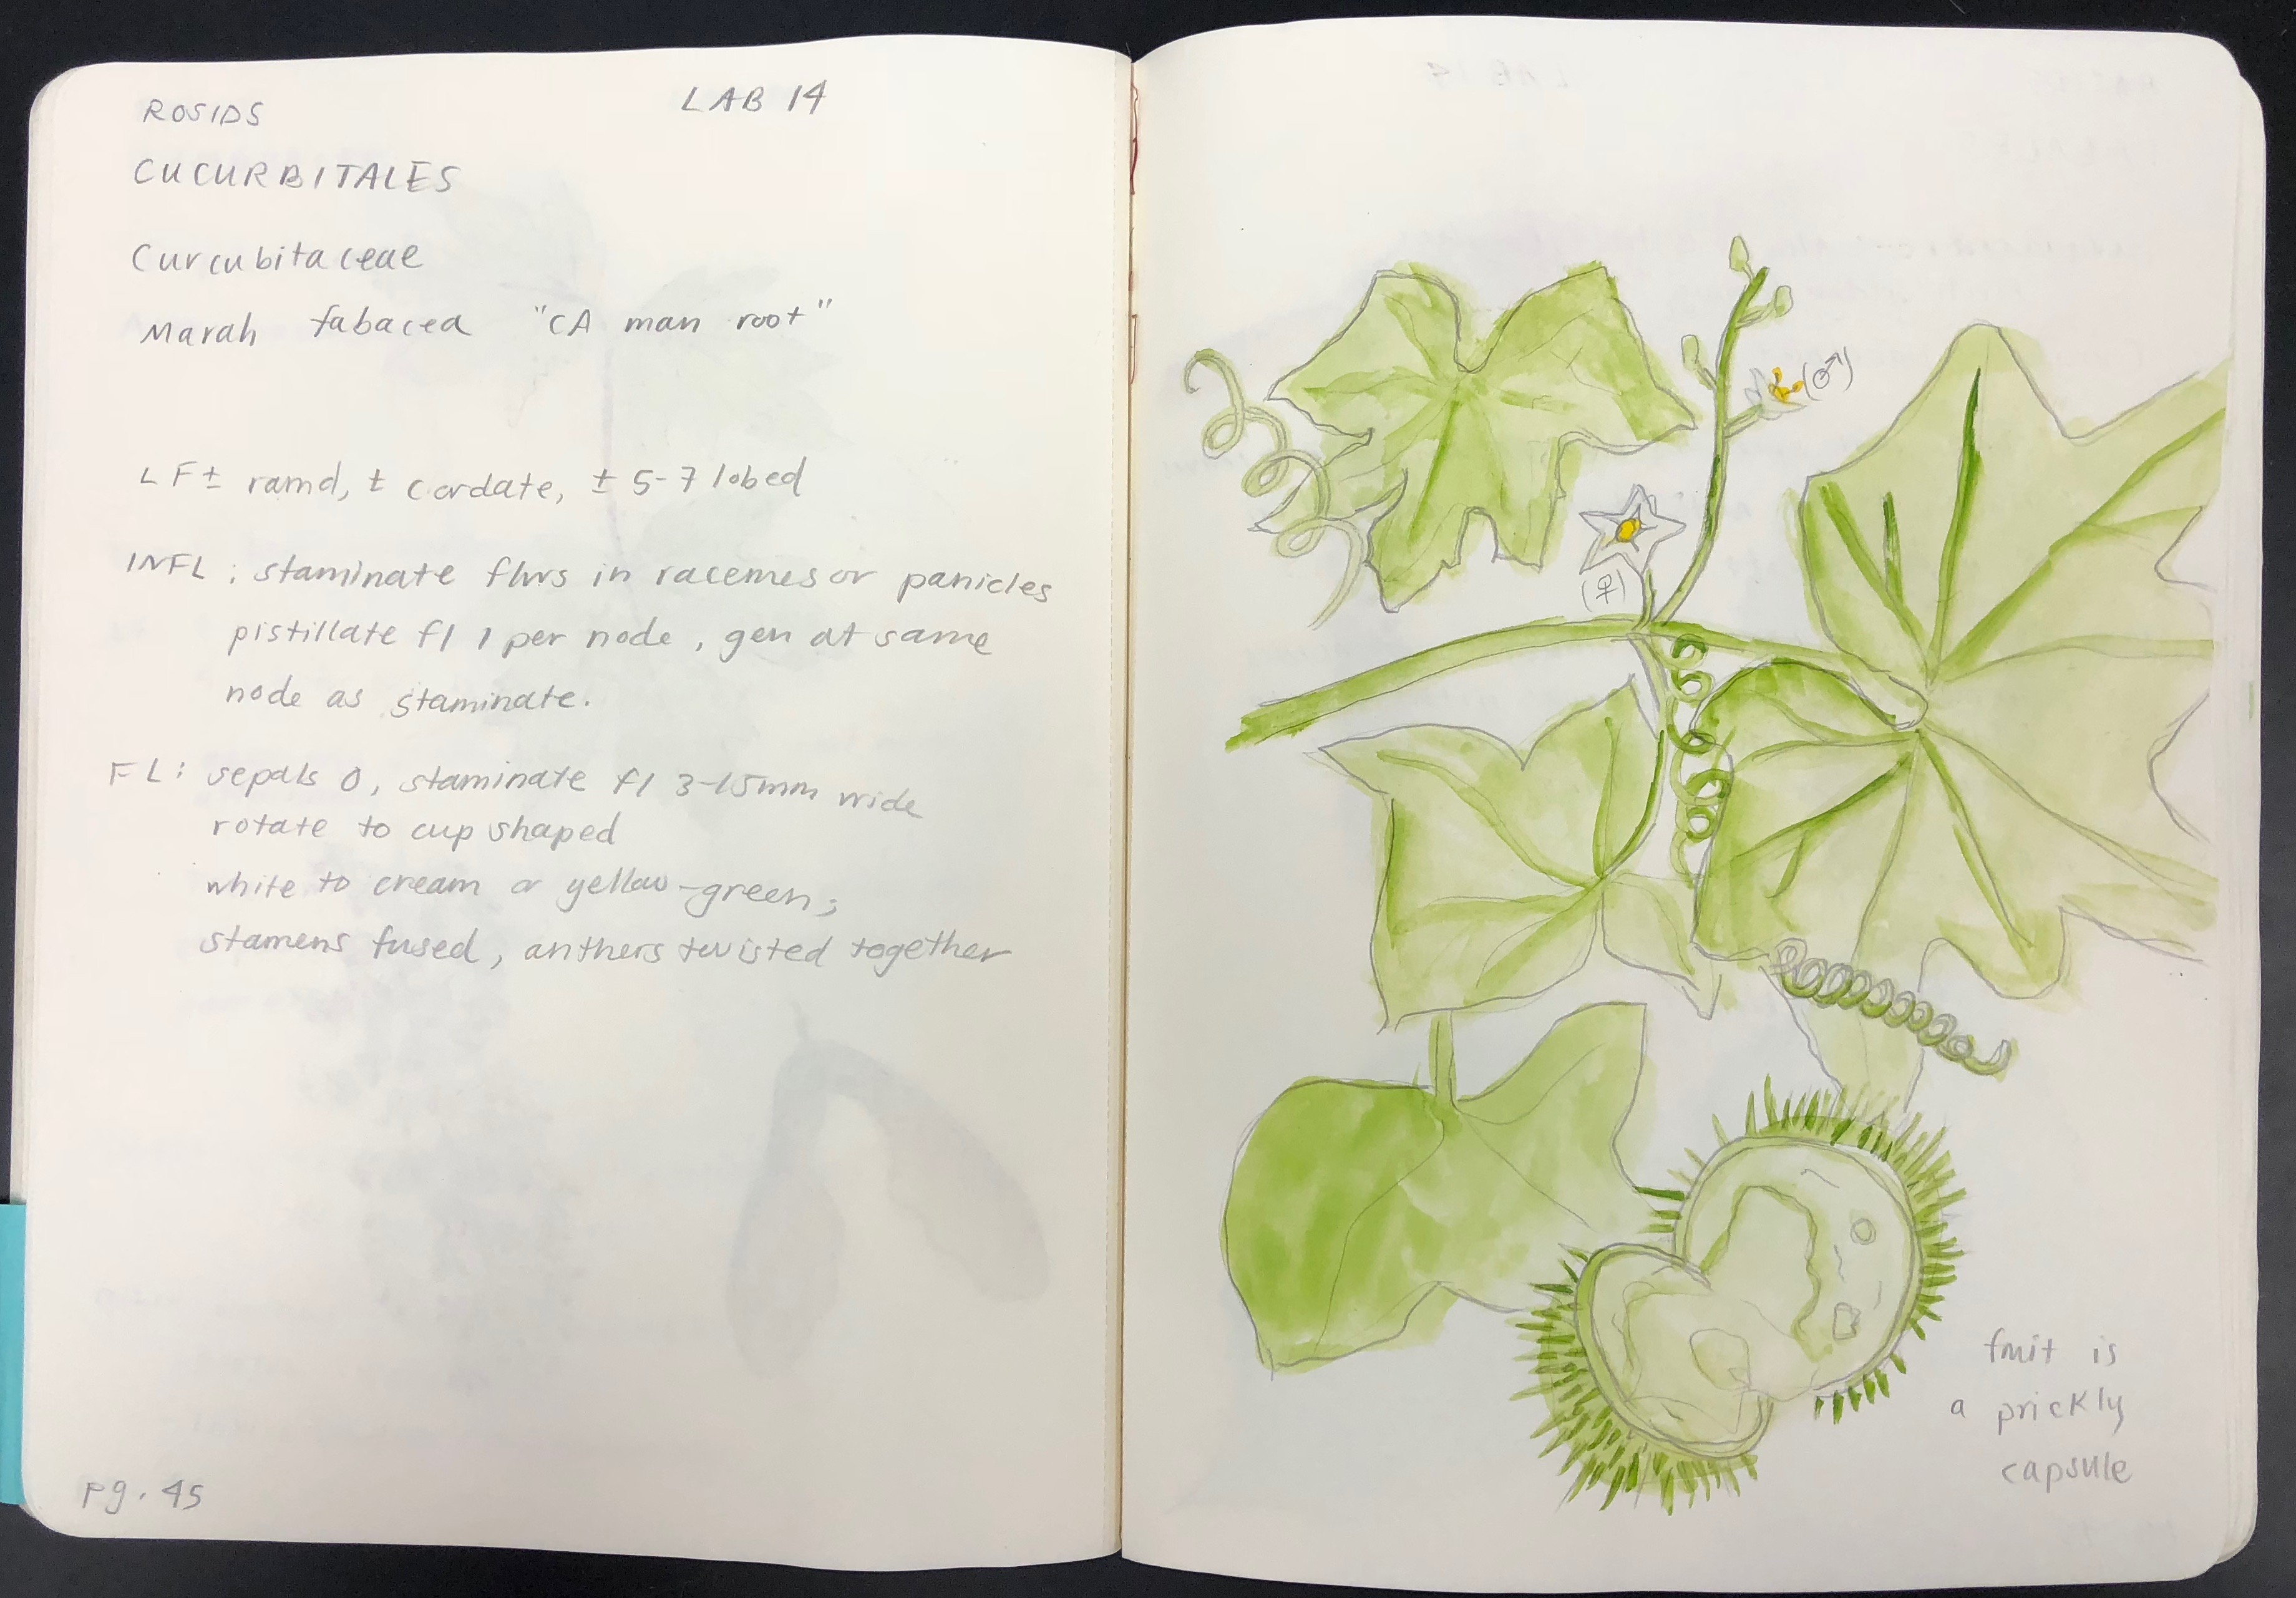 ROSIDS LAB 14
CUCURBITALES
Curcubitaceae
Marah fabacea "CA man root"
LF ± ramd, ± cordate, ± 5-7 lobed
INFL: staminate flwrs in racemes or panicles
pistillate fl 1 per node, gen at same
node as staminate.
FL: sepals 0, staminate fl 3-15mm wide
rotate to cup shaped
white to cream or yellow-green;
stamens fused, anthers twisted together
pg. 45
(♂)
(♀)
fruit is
a prickly
capsule